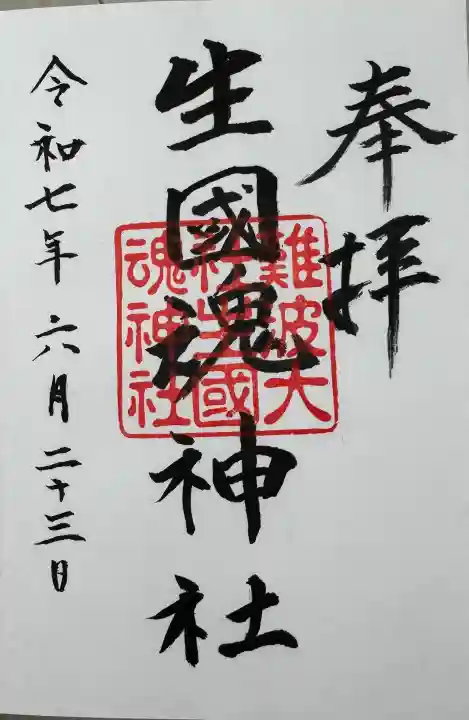 奉拝
生國魂神社
難波大
社生國
魂神社
令和七年六月二十三日